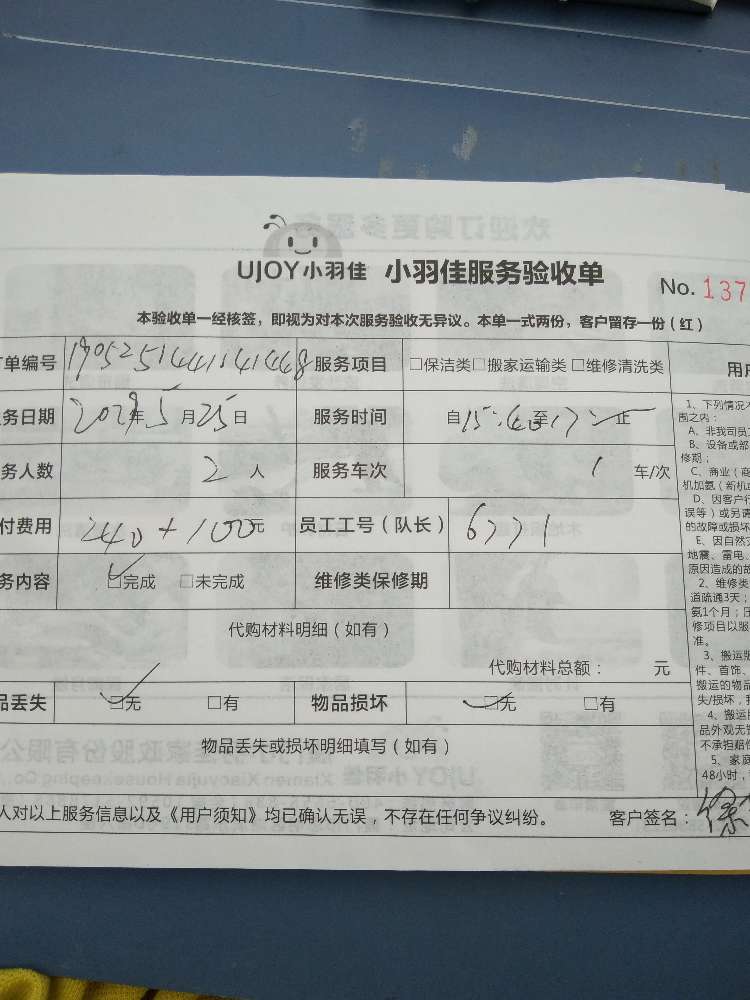 UJOY小羽佳 小羽佳服务验收单
No. 137
本验收单一经核签，即视为对本次服务验收无异议。本单一式两份，客户留存一份（红）
单编号 1905251441141468 服务项目 □保洁类 □搬家运输类 □维修清洗类
务日期 年5月25日 服务时间 自15:40至17 止
务人数 2人 服务车次 1 车/次
付费用 240+100元 员工工号（队长） 6771
务内容 □完成 □未完成 维修类保修期
代购材料明细（如有）
代购材料总额： 元
品丢失 □无 □有 物品损坏 □无 □有
物品丢失或损坏明细填写（如有）
人对以上服务信息以及《用户须知》均已确认无误，不存在任何争议纠纷。 客户签名：
用户
1、下列情况不
围之内：
A、非我司员工
B、设备或部
修期；
C、商业（商
机加氨（新机
D、因客户行
误等）或另请
的故障或损坏
E、因自然灾
地震、雷电、
原因造成的故
2、维修类
道疏通3天；
氨1个月；
修项目以服
准。
3、搬运
件、首饰、
搬运的物品
失/损坏，
4、搬运
品外观无
不承担赔
5、家庭
48小时，